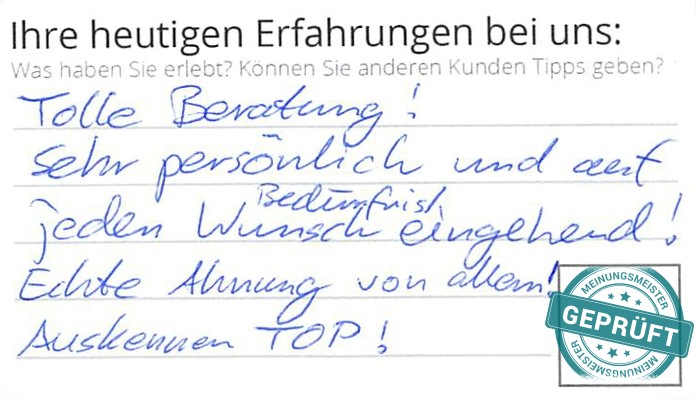 Ihre heutigen Erfahrungen bei uns:
Was haben Sie erlebt? Können Sie anderen Kunden Tipps geben?
Tolle Beratung!
Sehr persönlich und auf
Bedürfnis,
jeden Wunsch eingehend!
Echte Ahnung von allem!
Auskennen TOP!
MEINUNGSMEISTER
GEPRÜFT
MEINUNGSMEISTER